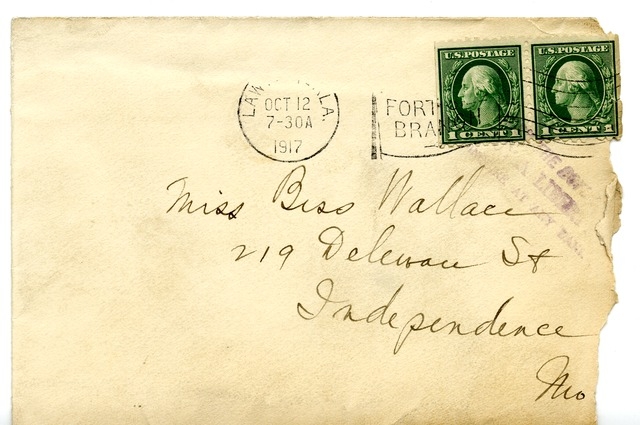 U.S. POSTAGE
U.S. POSTAGE
1 CENT 1
1 CENT 1
OCT 12
7-30A
1917
FORT
BRA
Miss Bess Wallace
219 Delewau St
Independence
Mo